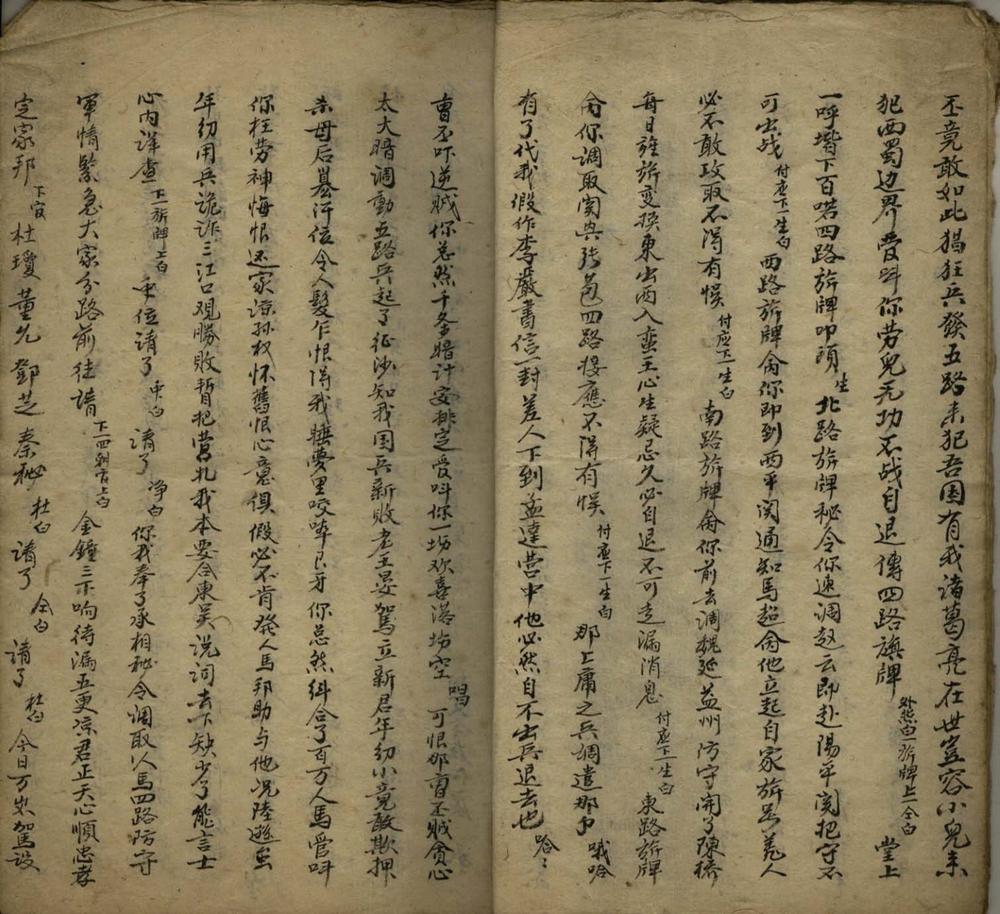 丕竟敢如此猖狂兵發五路来犯吾国有我诸葛亮在世豈容小兒来
犯西蜀边界管叫你劳兒无功不战自退傳四路旗牌 外照白一旂牌上仝白 堂上
一呼增下百喏四路旂牌叩頭 生 北路旂牌秘令你速调赵云即赴陽平関把守不
可出战 付应下一生白 西路旂牌命你即到西平関通知馬超命他立起自家旂号羌人
必不敢攻取不淂有悮 付应下一生白 南路旂牌命你前去调魏延益州防守開了陳橋
每日旌旂变换東出西入蛮王心生疑忌久必自退不可走漏消息 付应下一生白 東路旂牌
命你调取関興张苞四路接應不淂有悮 付应下一生白 那上庸之兵调遣那 哦哈
有了代我假作李嚴書信一封差人下到孟達营中他必然自不出兵退去也 哈〻
曹丕吓逆贼你总然千条暗计安排定管叫你一塲欢喜落塲空 唱 可恨那曹丕贼贪心
太大暗调動五路兵起了征沙知我国兵新败老王晏駕立新君年纫小竟敢欺押
母后篡汗位令人髮乍恨淂我睡夢里咬碎艮牙你总然糾合了百万人馬管叫
你枉劳神悔恨还家諒孙权怀舊恨心意俱假必不肯發人馬邦助与他况陸遜虽
年纫用兵詭诈三江口观勝敗暂把营扎我本要合東吴说词去下缺少了能言士
心内详查 下一旂牌上白 位请了 白 请了 净白 你我奉了承相秘令调取人馬四路防守
軍情緊急大家分路前往请 下四朝官上白 金鐘三下响待漏五更凉君正天心順忠孝
定家邦 下官 杜瓊董允鄧芝秦秘 杜白 请了 仝白 请了 杜白 今日万岁駕设